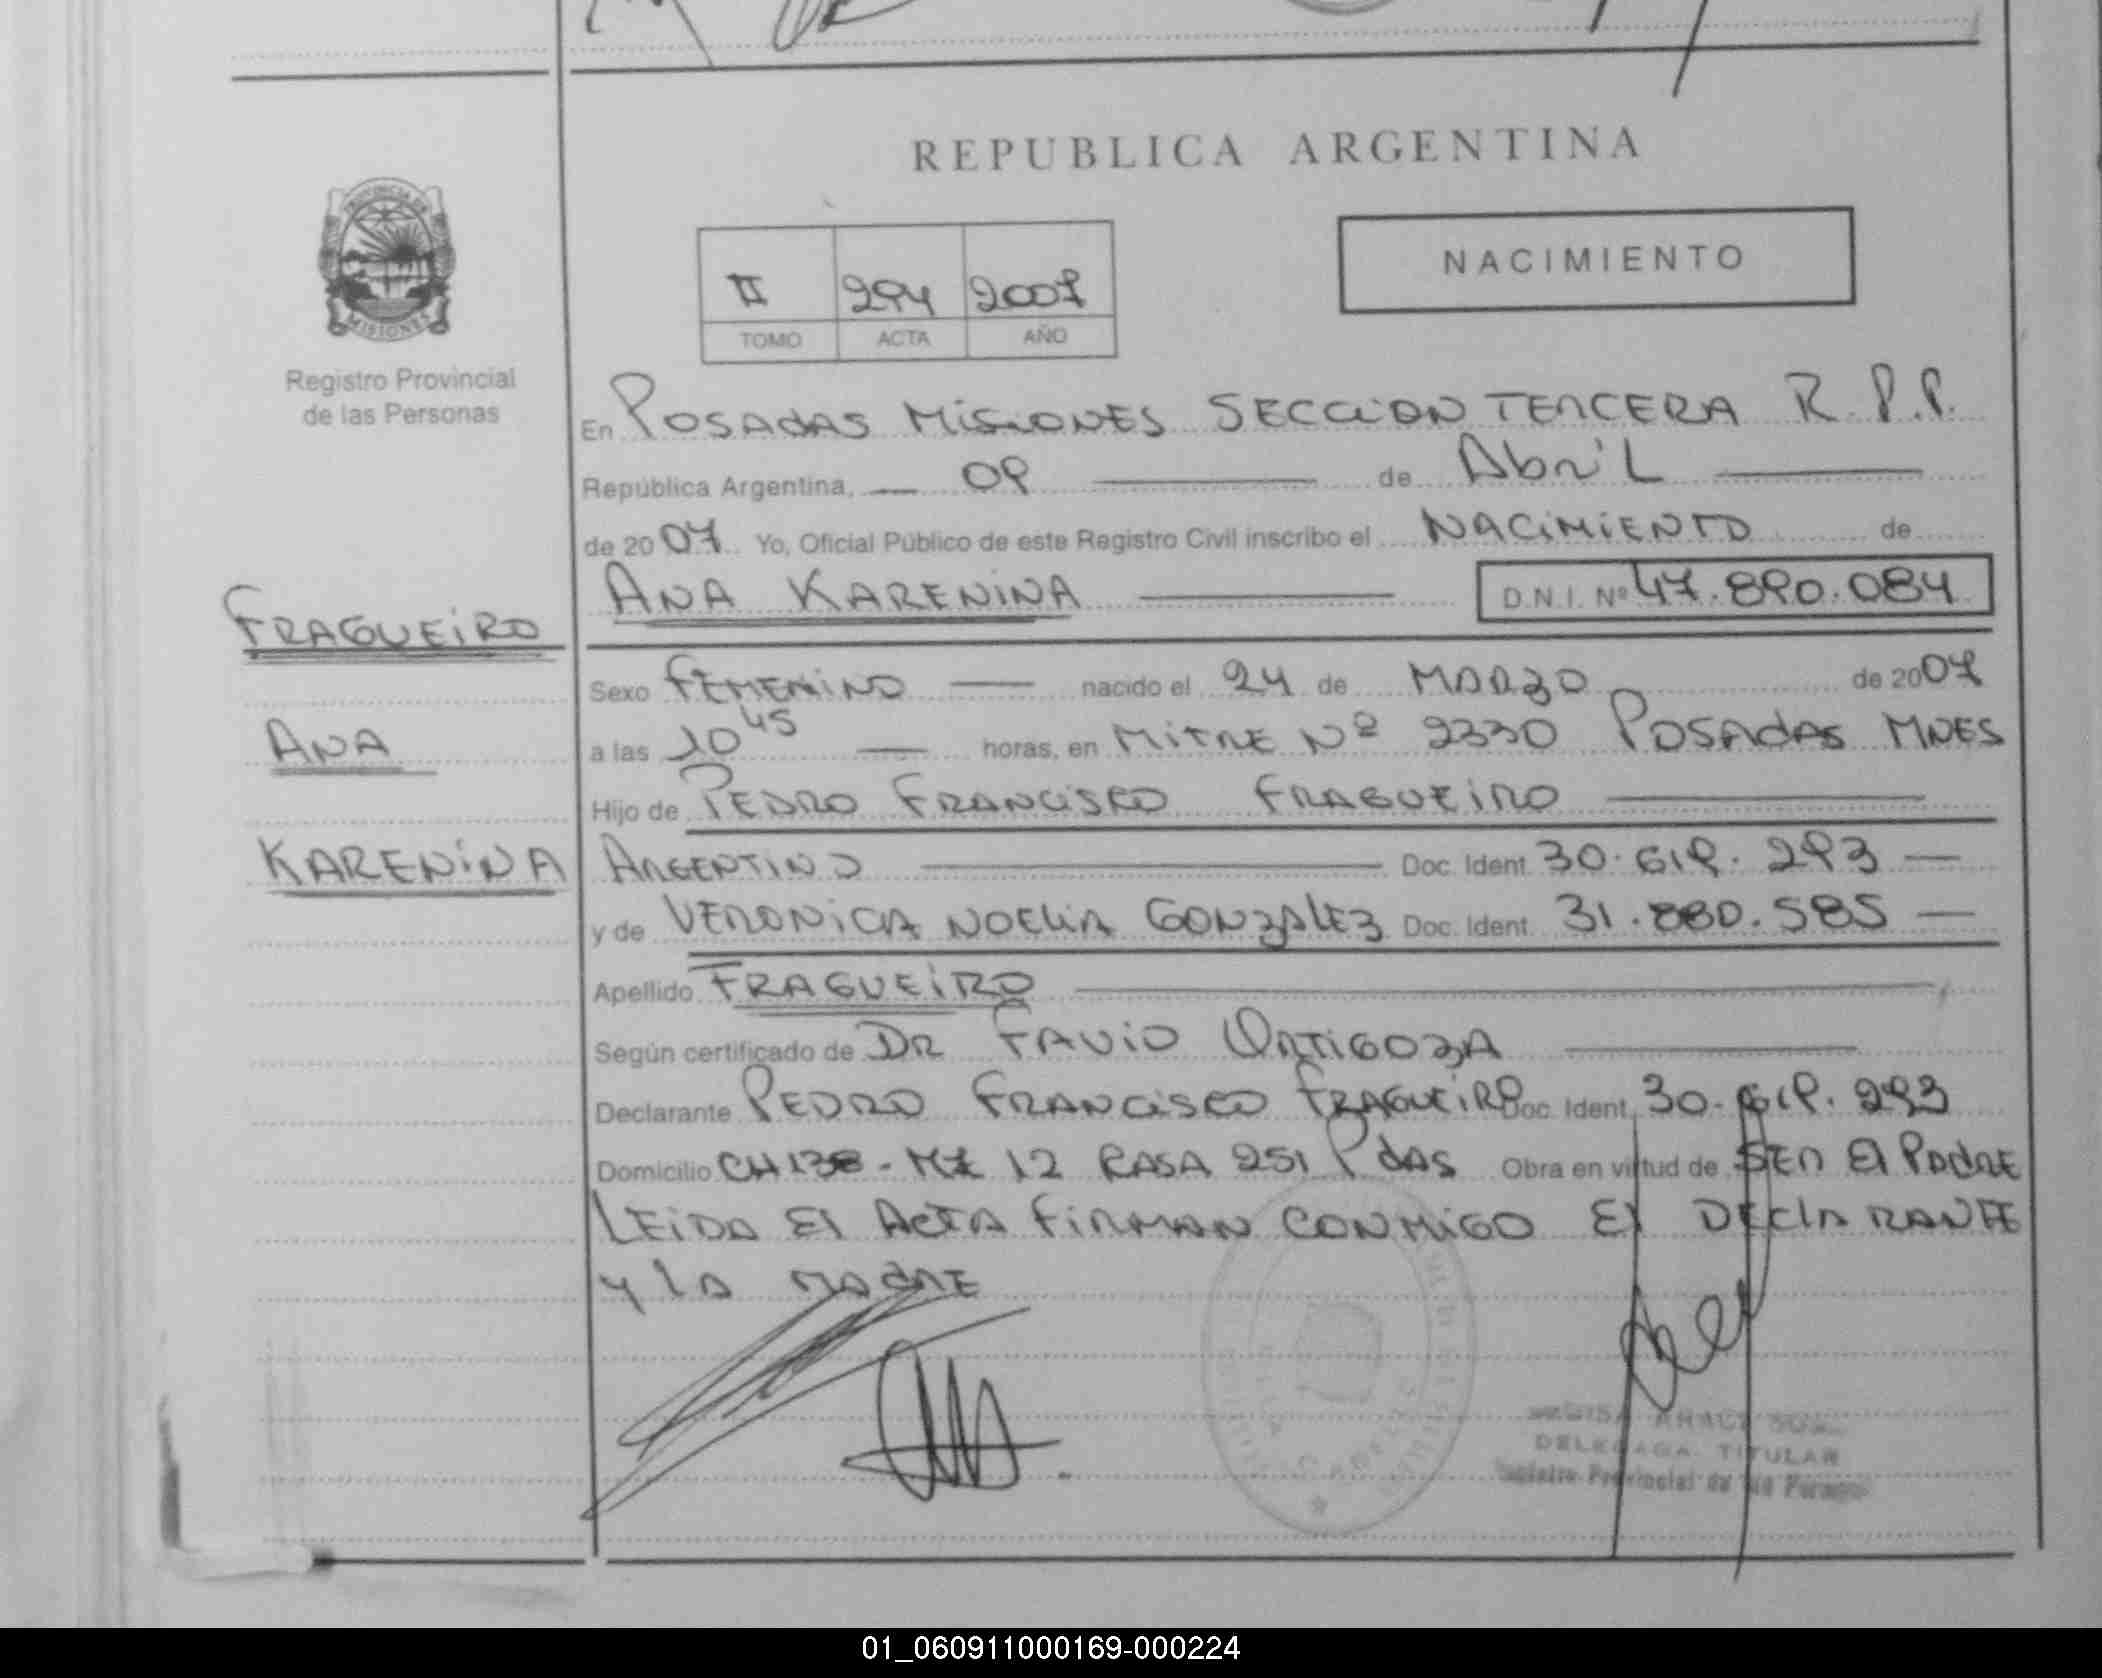 REPUBLICA ARGENTINA
NACIMIENTO
II 294 2007
TOMO ACTA AÑO
PROVINCIA DE
MISIONES
Registro Provincial
de las Personas
En POSADAS MISIONES SECCION TERCERA R.P.P.
República Argentina, 09 de Abril
de 2007 Yo, Oficial Público de este Registro Civil inscribo el NACIMIENTO de
ANA KARENINA D.N.I. Nº 47.890.084
FRAGUEIRO
Sexo FEMENINO nacido el 24 de MARZO de 2007
ANA
a las 10 45 horas, en MITRE Nº 2330 POSADAS MNES
Hijo de PEDRO FRANCISCO FRAGUEIRO
KARENINA
ARGENTINO Doc. Ident. 30.619.293
y de VERONICA NOELIA GONZALEZ Doc. Ident. 31.880.585
Apellido FRAGUEIRO
Según certificado de DR FAVIO ORTIGOZA
Declarante PEDRO FRANCISCO FRAGUEIRO Doc. Ident. 30.619.293
Domicilio CH 138 - MZ 12 CASA 251 Pdas Obra en virtud de SER El PADRE
LEIDA El ACTA FIRMAN CONMIGO El DEClARANTE
y lA MADRE
DELEGADA TITULAR
Registro Provincial de las Personas
01_060911000169-000224